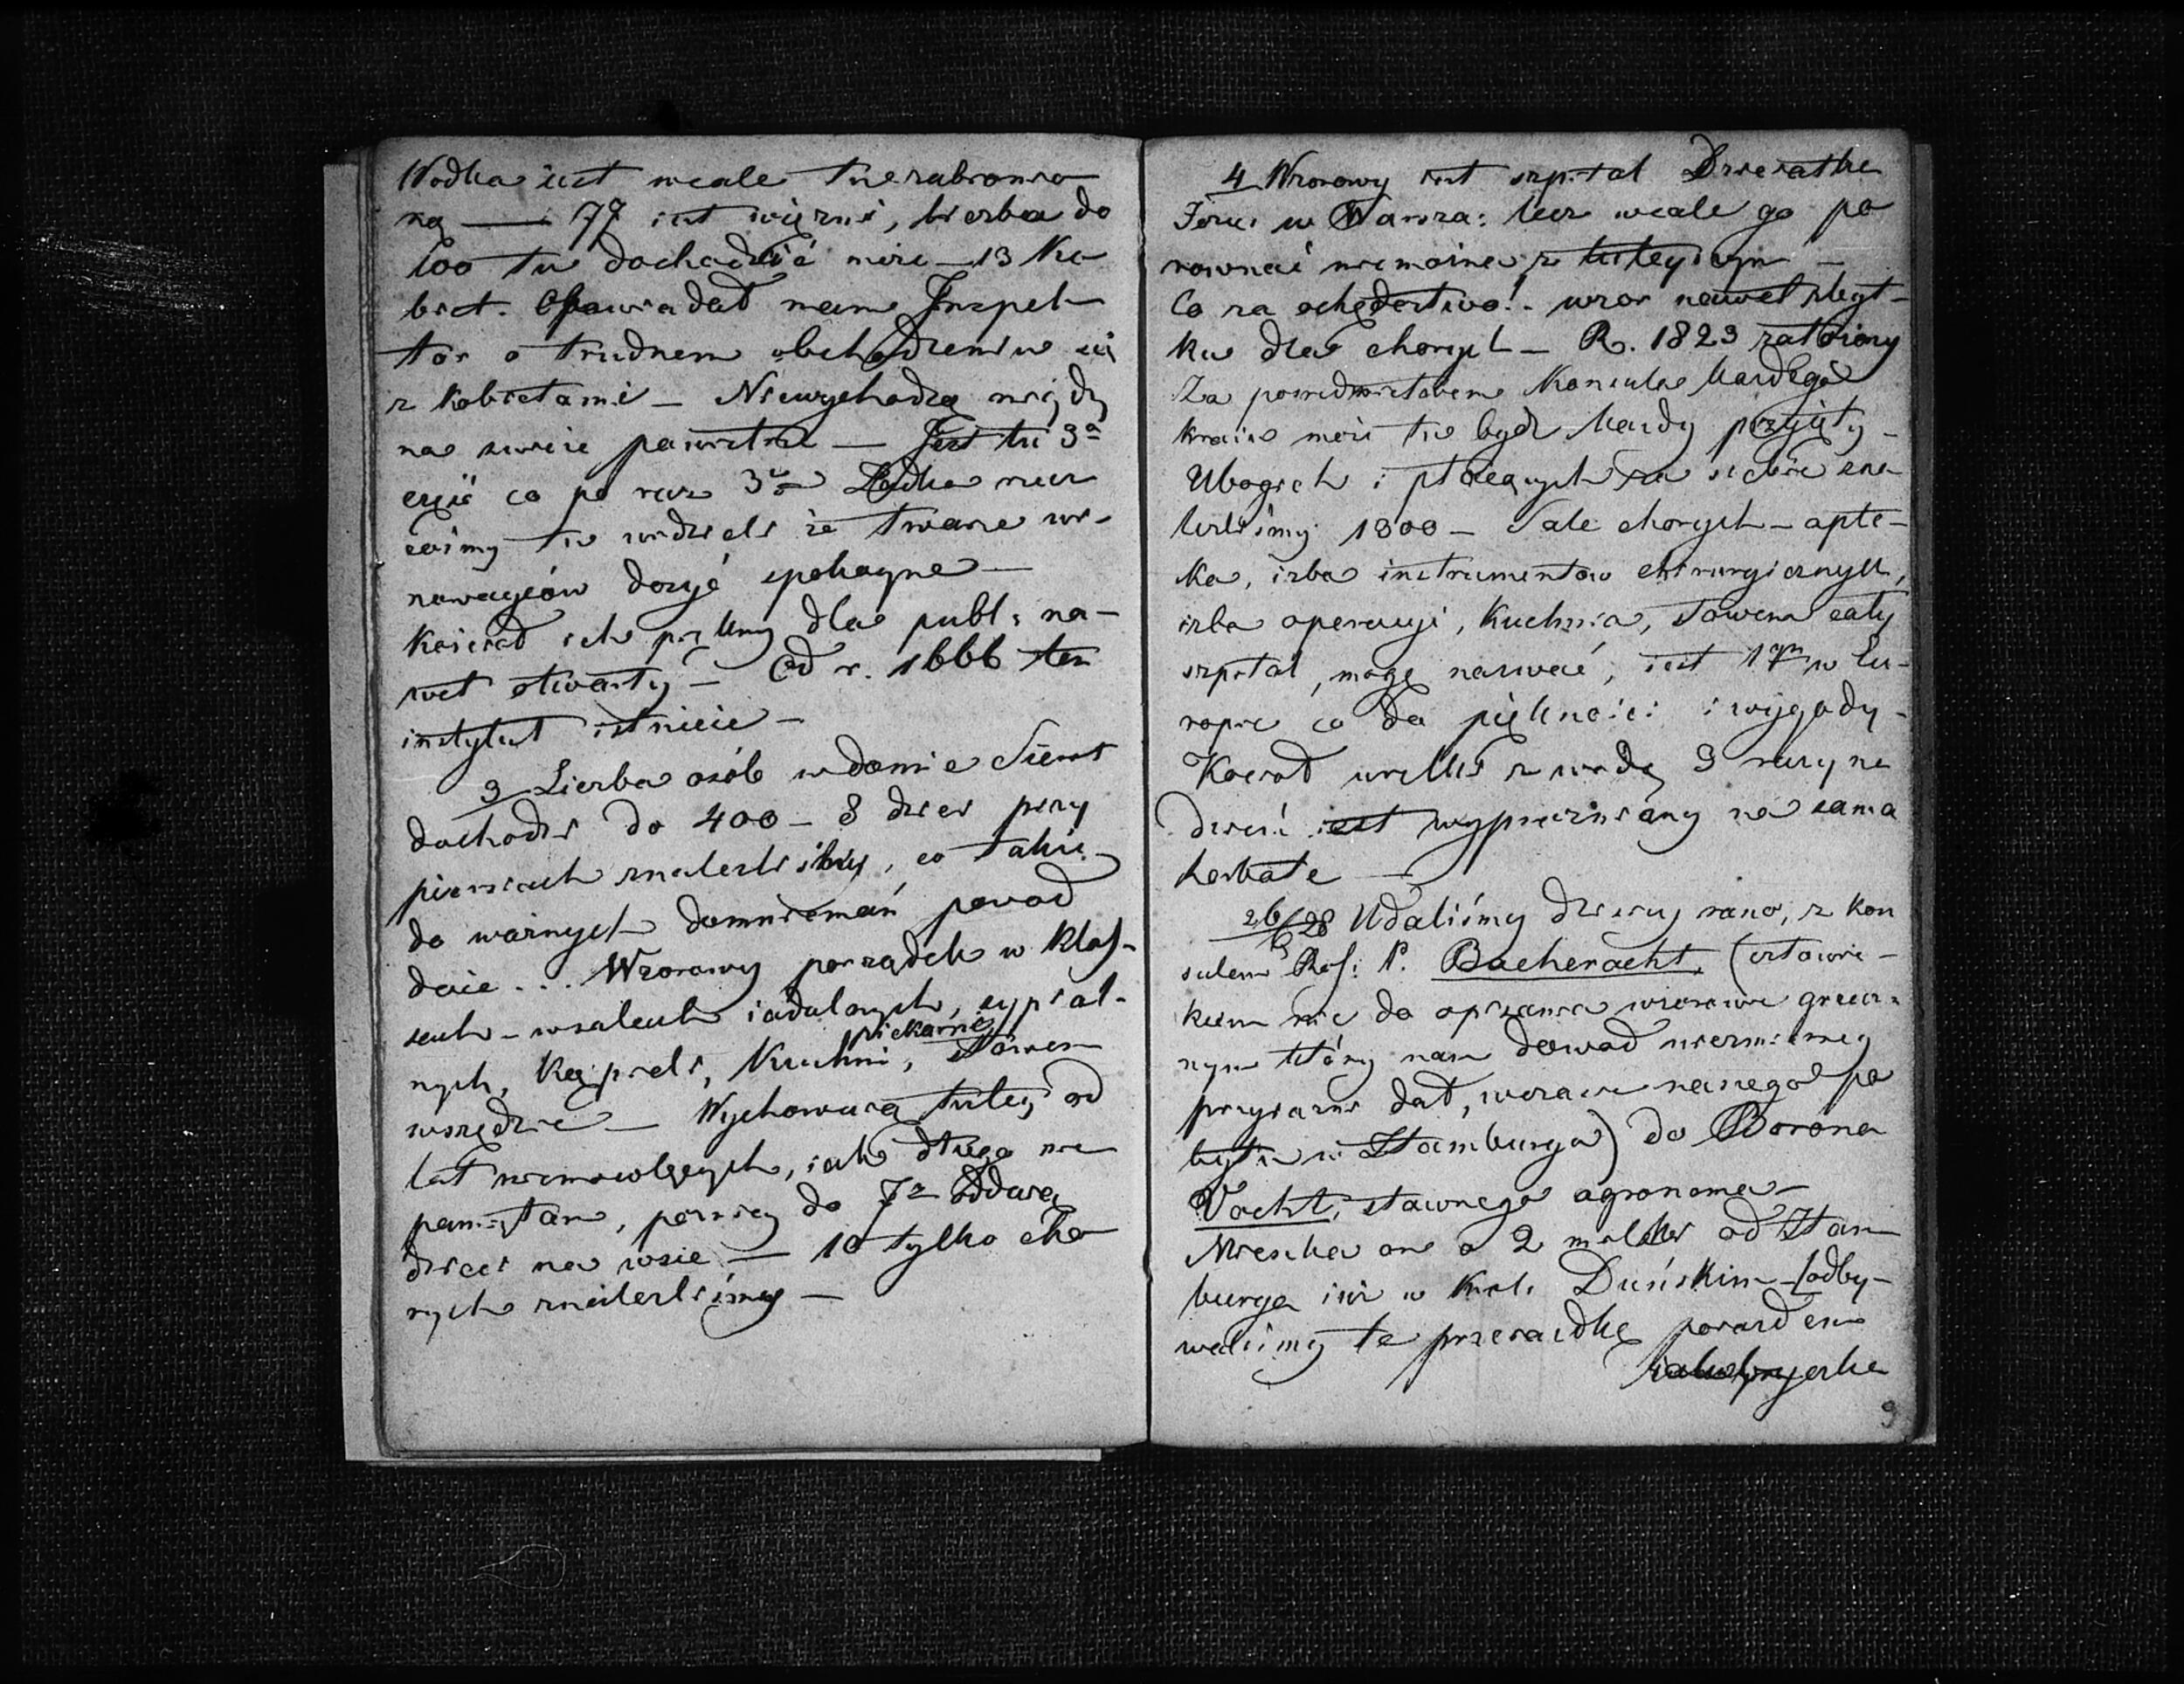 Wodka iest wcale tu zabronio
ną — 77 iest więźni, liczba do
600 tu dochadzić może — 13 Ko
biet. Opowiadał nam Inspek
tor o trudnem obchodzeniu się
z kobietami — Niewychodzą nigdy
na świże powietrze — Jest tu 3a
częić co po raz 3ci Ledka
tu widzieli że twarze wi-
nowaycow dosyć spokoyne —
Kościoł ich piękny dla publ: na-
wet otwarty — Od r. 1666 ten
instytut istnieie —
3 Liczba osób w domie Sierot
dochodzi do 400 — 8 dzieci przy
piersiach znalezlismy, co takie
do ważnych domniemań powod
daie ... Wzorowy porządek w klas-
sach — w salach iadalnych, sypial-
piekarnię
nych, Kąpieli, Kuchni, słowem
wszędzie — Wychowuią tutey od
lat niemowlęcych, iak długo nie
pamiętam, pozniey do 7a oddaią
dzieci na wsie — 10 tylko cho
rych znalezlismy —
4 Wzorowy iest szpital Dzieciątka
Jezus w Warsza: lecz wcale go po
rownać niemożna z tuteyszym —
Co za ochędostwo! — wzor nawet zbyt-
ku dla chorych — R. 1823 założony
Za posrednictwem Konsula każdego
kraiu może tu bydź każdy przyięty —
Ubogich i płacących za siebie zna
lezlismy 1300 — Sale chorych — apte-
ka, izba instrumentow chirurgicznych,
izba operacyi, Kuchnia, słowem cały
szpital, mogę nazwać, iest 1ym w Eu-
ropie co do piękności i wygody —
Kocioł wielki z wodą 3 razy na
dzień iest wyprozniany na sama
herbate —
26/6 28 Udaliśmy dzisiay rano, z kon
sulem Ros: P. Bacheracht, (człowie-
kiem nie do opisania wzorowo grzecz-
nym który nam dowod niezmienney
przyiazni dał, w czasie naszego po
bytu w Hamburgu) do Barona
Vocht, sławnego agronoma —
Mieszka on o 2 milki od Ham
burga iuż w Krol. Duńskim — (odby-
walismy te przeiaidkę poiazdem